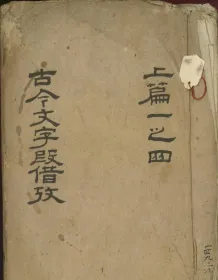 上篇一之四
古今文字叚借攷